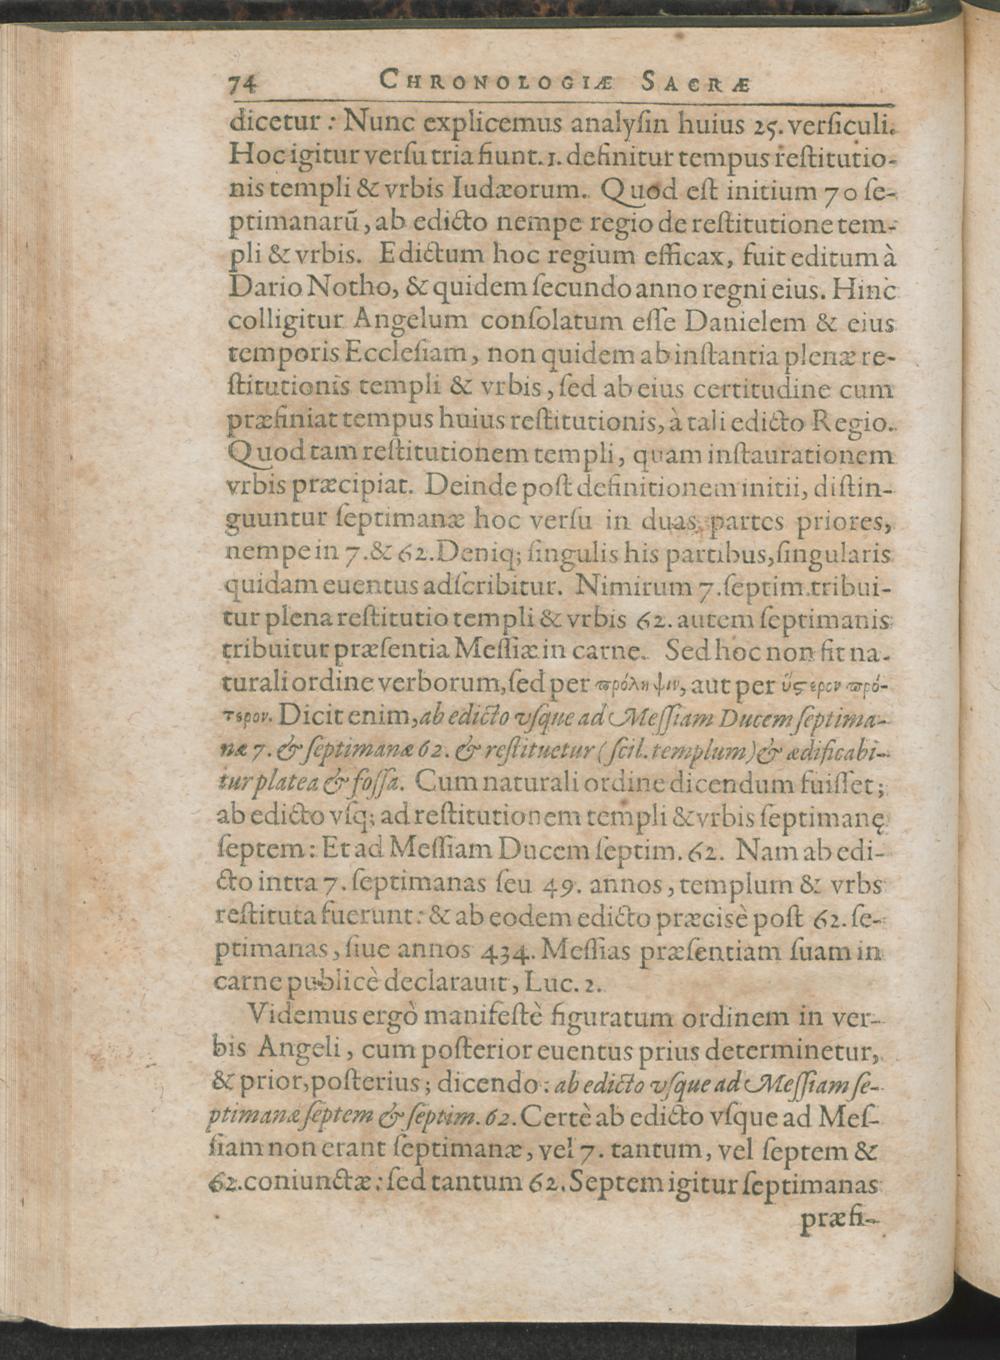 74 CHRONOLOGIÆ SACRÆ
dicetur: Nunc explicemus analyſin huius 25. verſiculi.
Hoc igitur verſu tria fiunt. 1. definitur tempus reſtitutio-
nis templi & vrbis Iudæorum. Quod eſt initium 70 ſe-
ptimanarū, ab edicto nempe regio de reſtitutione tem-
pli & vrbis. Edictum hoc regium efficax, fuit editum à
Dario Notho, & quidem ſecundo anno regni eius. Hinc
colligitur Angelum conſolatum eſſe Danielem & eius
temporis Eccleſiam, non quidem ab inſtantia plenæ re-
ſtitutionis templi & vrbis, ſed ab eius certitudine cum
præfiniat tempus huius reſtitutionis, à tali edicto Regio.
Quod tam reſtitutionem templi, quam inſtaurationem
vrbis præcipiat. Deinde poſt definitionem initii, diſtin-
guuntur ſeptimanæ hoc verſu in duas partes priores,
nempe in 7. & 62. Deniq; ſingulis his partibus, ſingularis
quidam euentus adſcribitur. Nimirum 7. ſeptim. tribui-
tur plena reſtitutio templi & vrbis 62. autem ſeptimanis
tribuitur præſentia Meſſiæ in carne. Sed hoc non fit na-
turali ordine verborum, ſed per πρόληψιν, aut per ὕςερον πρό-
τερον. Dicit enim, ab edicto vſque ad Meſſiam Ducem ſeptima-
næ 7. & ſeptimanæ 62. & reſtituetur (ſcil. templum) & ædificabi-
tur platea & foſſa. Cum naturali ordine dicendum fuiſſet;
ab edicto vſq; ad reſtitutionem templi & vrbis ſeptimanę
ſeptem: Et ad Meſſiam Ducem ſeptim. 62. Nam ab edi-
cto intra 7. ſeptimanas ſeu 49. annos, templum & vrbs
reſtituta fuerunt: & ab eodem edicto præcisè poſt 62. ſe-
ptimanas, ſiue annos 434. Meſſias præſentiam ſuam in
carne publicè declarauit, Luc. 2.
Videmus ergò manifeſtè figuratum ordinem in ver-
bis Angeli, cum poſterior euentus prius determinetur,
& prior, poſterius; dicendo: ab edicto vſque ad Meſſiam ſe-
ptimanæ ſeptem & ſeptim. 62. Certè ab edicto vſque ad Meſ-
ſiam non erant ſeptimanæ, vel 7. tantum, vel ſeptem &
62. coniunctæ: ſed tantum 62. Septem igitur ſeptimanas
præfi-